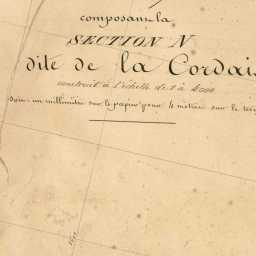 composant la
SECTION N
dite de la Cordais
construit à l'échelle de 1 à 4000
Soit un millimètre sur le papier pour 4 mètres sur le terr